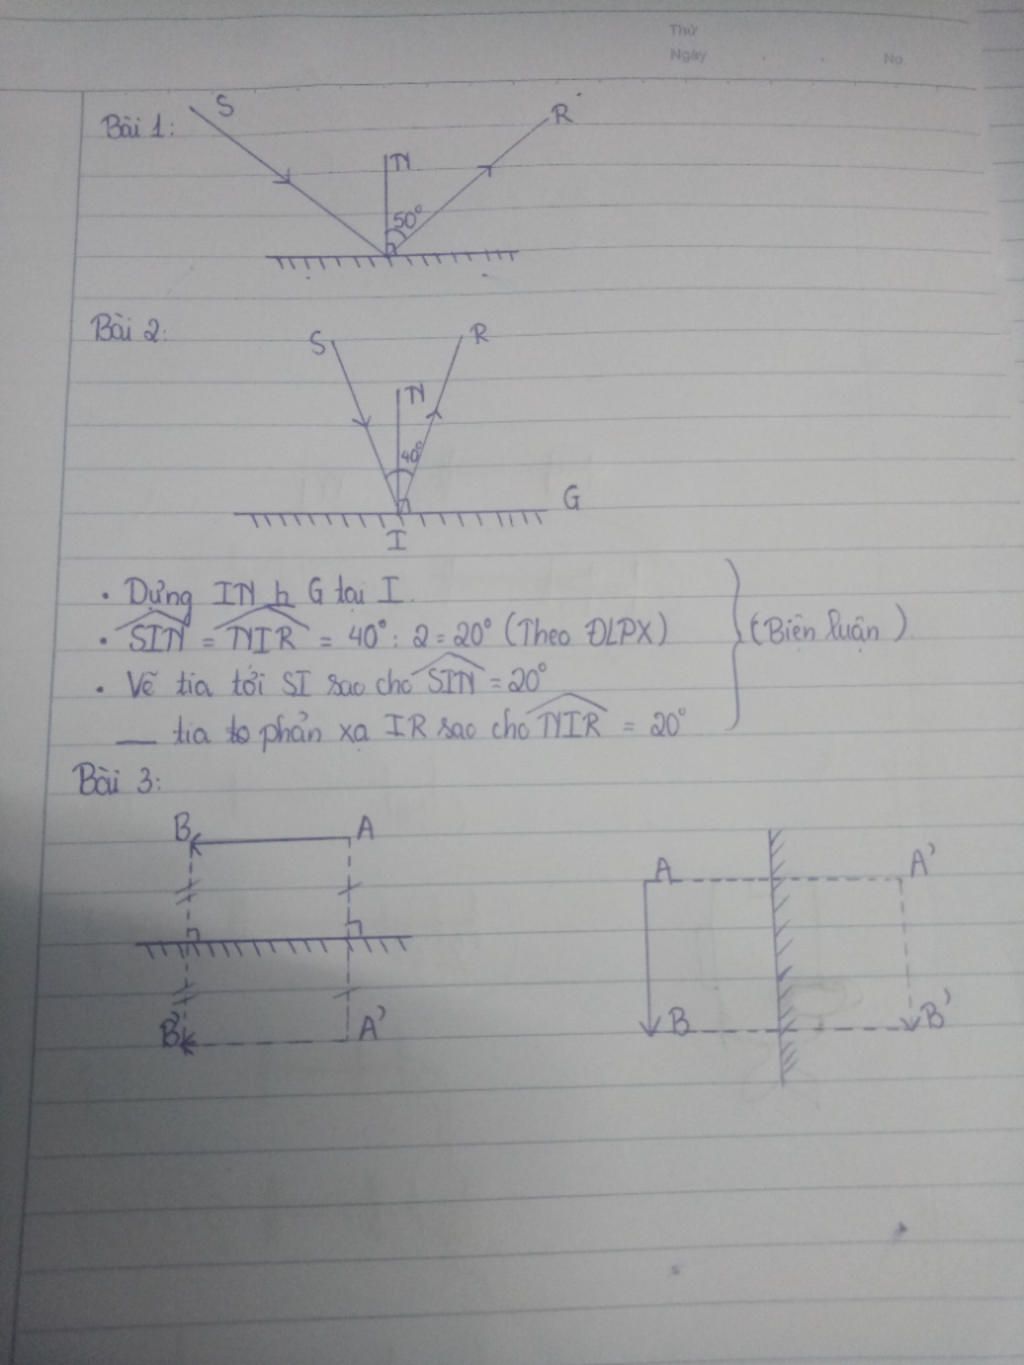 Thứ
Ngày No.
Bài 1:
S
R
N
50°
Bài 2:
S
R
N
40°
G
I
• Dựng IN ⊥ G tại I.
• SIN = NIR = 40° : 2 = 20° (Theo ĐLPX)
• Vẽ tia tới SI sao cho SIN = 20°
— tia phản xạ IR sao cho NIR = 20°
(Biện luận)
Bài 3:
B A
B' A'
A A'
B B'